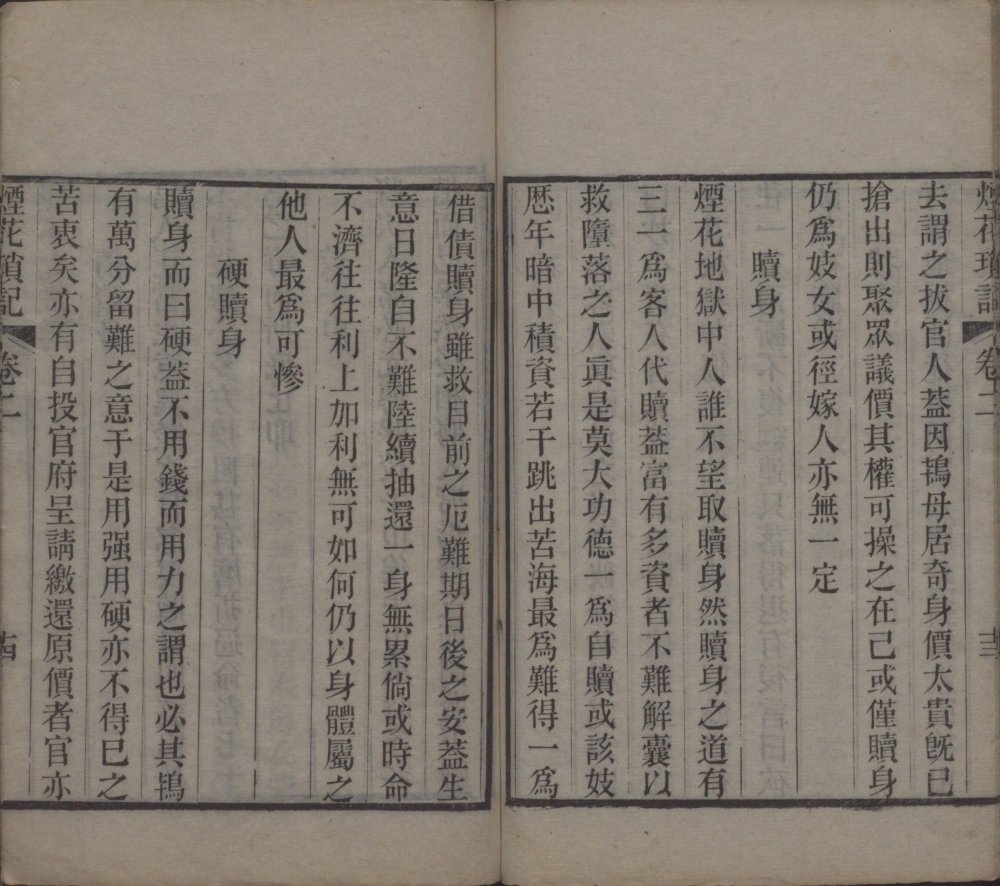 煙花瑣記 卷二 十三
去謂之拔官人葢因鴇母居奇身價太貴旣已
搶出則聚眾議價其權可操之在己或僅贖身
仍爲妓女或徑嫁人亦無一定
贖身
煙花地獄中人誰不望取贖身然贖身之道有
三一爲客人代贖葢富有多資者不難解囊以
救墮落之人眞是莫大功德一爲自贖或該妓
歷年暗中積資若干跳出苦海最爲難得一爲
借債贖身雖救目前之厄難期日後之安葢生
意日隆自不難陸續抽還一身無累倘或時命
不濟往往利上加利無可如何仍以身體屬之
他人最爲可慘
硬贖身
贖身而曰硬葢不用錢而用力之謂也必其鴇
有萬分留難之意于是用强用硬亦不得已之
苦衷矣亦有自投官府呈請繳還原價者官亦
煙花瑣記 卷二 十四